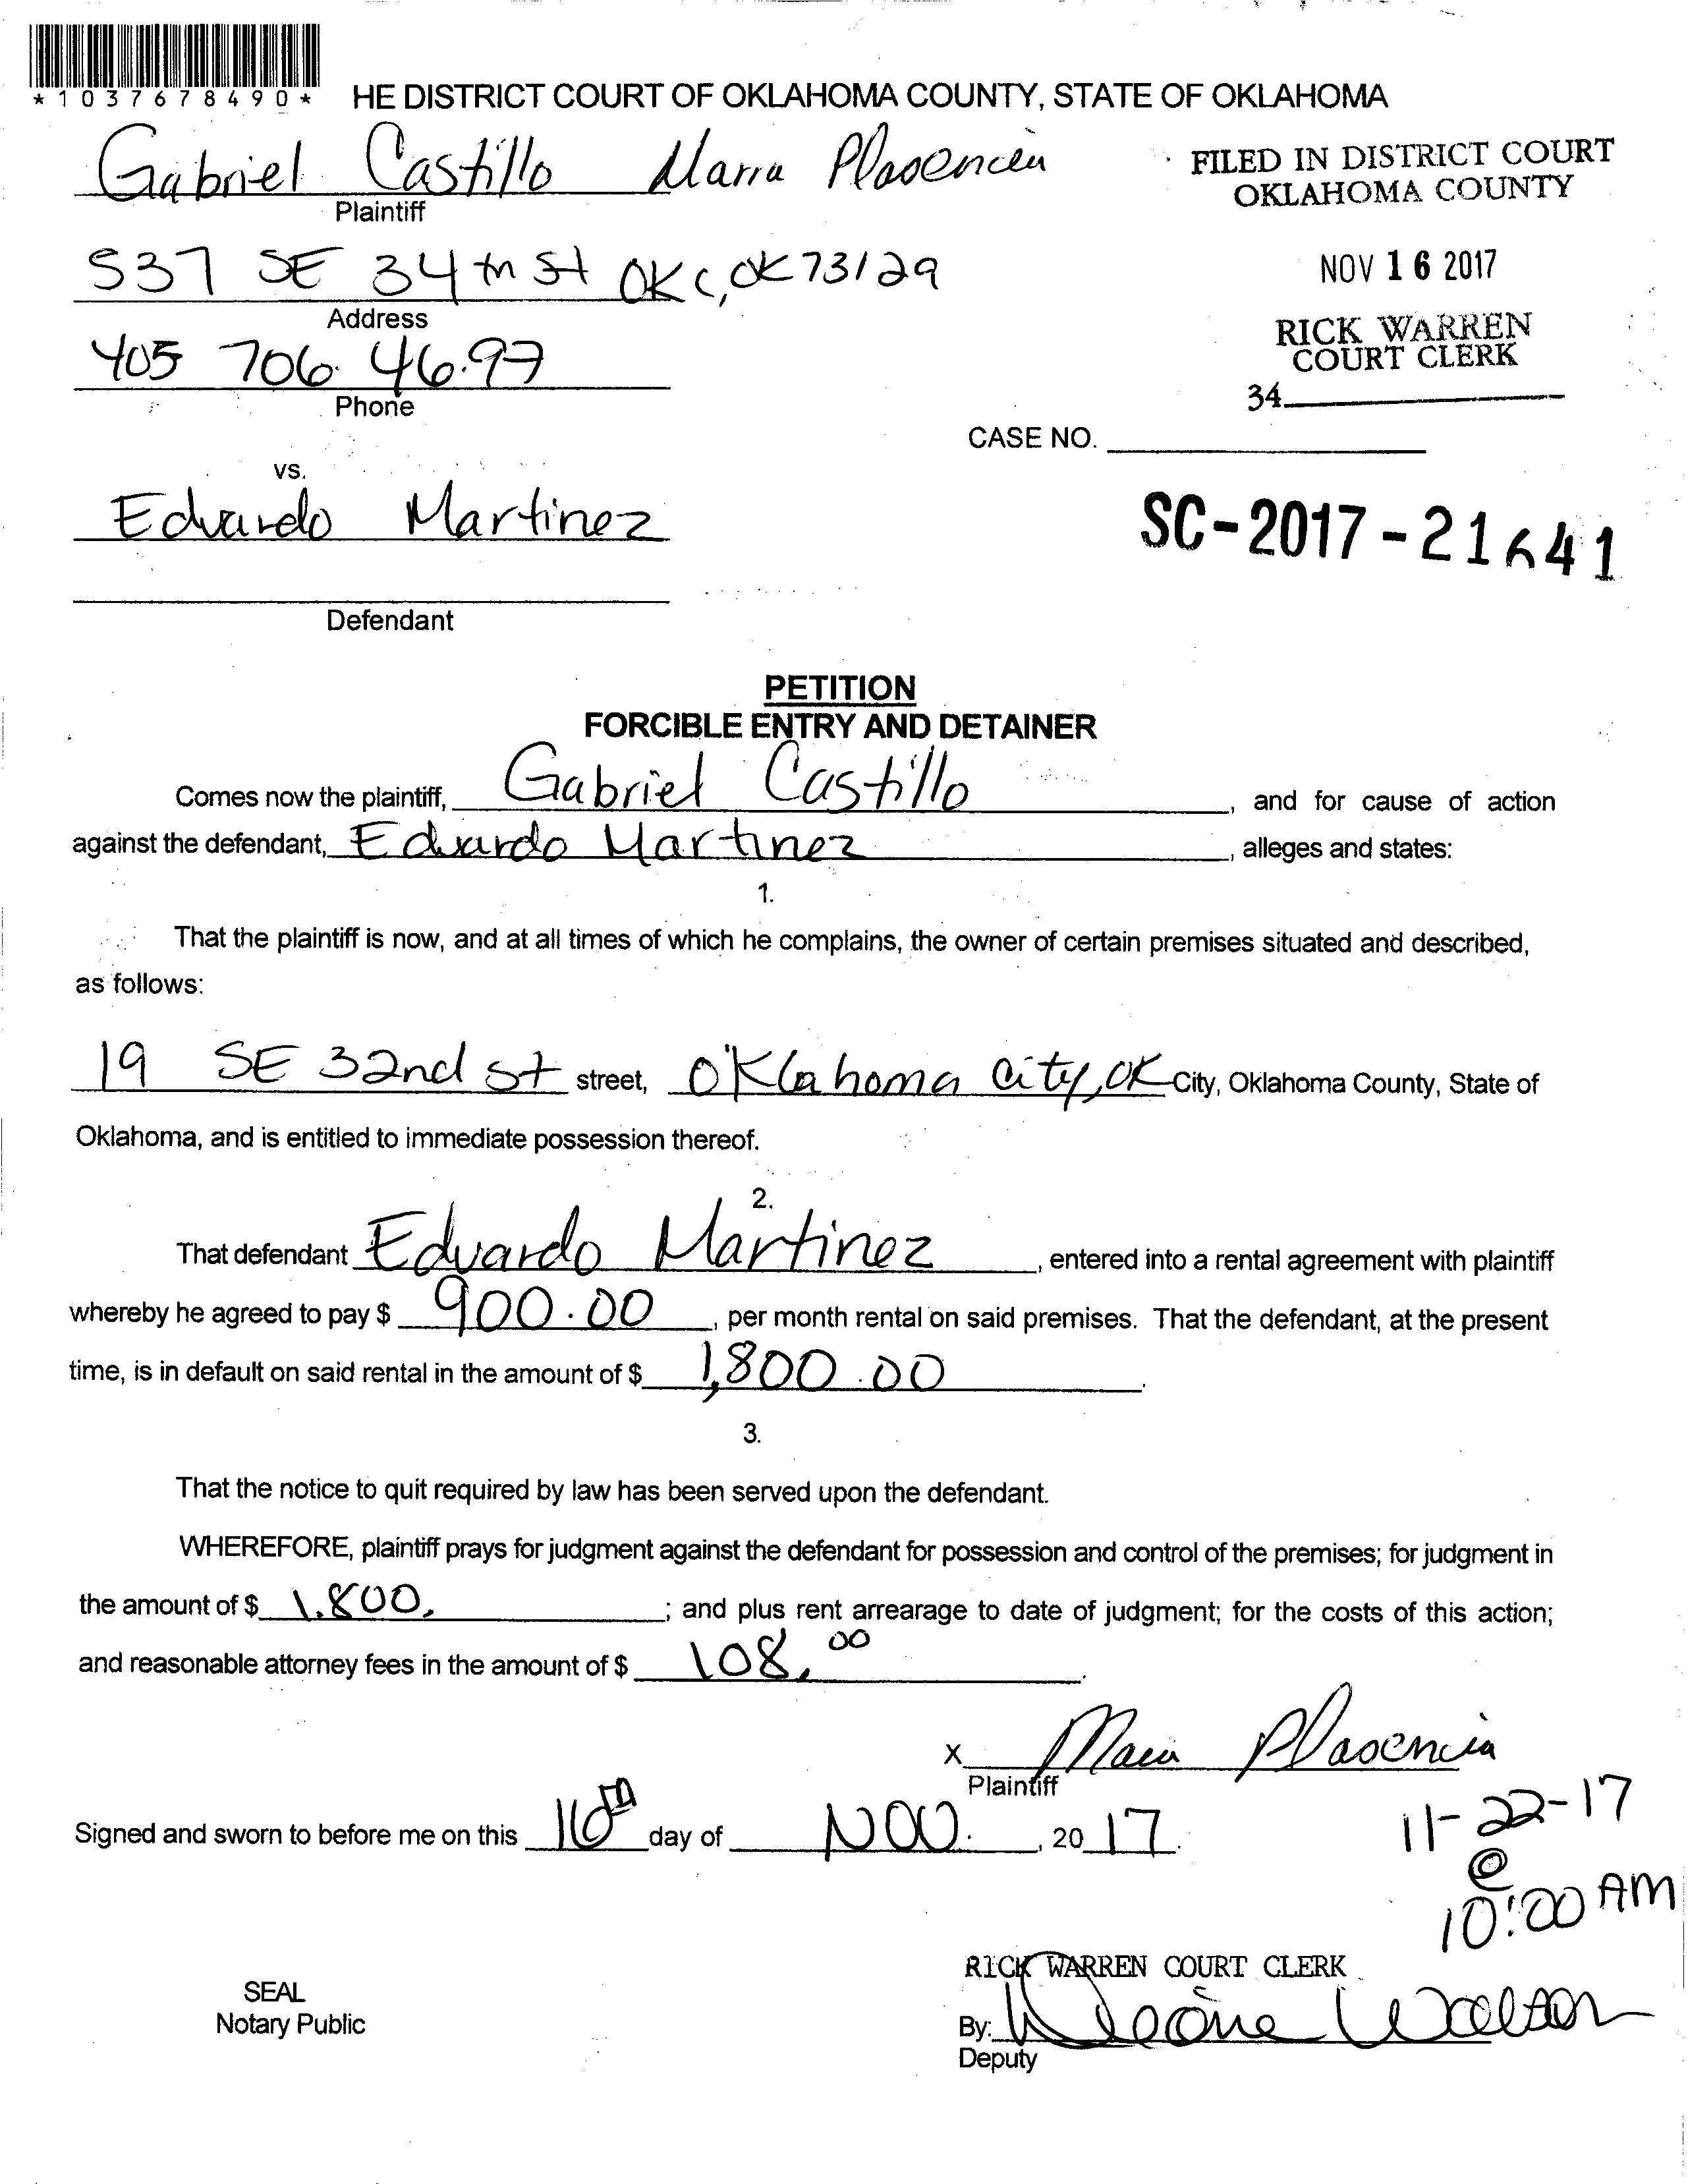 *1037678490*
HE DISTRICT COURT OF OKLAHOMA COUNTY, STATE OF OKLAHOMA
Gabriel Castillo Maria Plasencia
Plaintiff
FILED IN DISTRICT COURT
OKLAHOMA COUNTY
537 SE 34th St OKC, OK 73129
Address
NOV 16 2017
405 706 46.97
Phone
RICK WARREN
COURT CLERK
34
CASE NO.
vs.
Eduardo Martinez
SC-2017-21641
Defendant
PETITION
FORCIBLE ENTRY AND DETAINER
Comes now the plaintiff, Gabriel Castillo, and for cause of action
against the defendant, Eduardo Martinez, alleges and states:
1.
That the plaintiff is now, and at all times of which he complains, the owner of certain premises situated and described,
as follows:
19 SE 32nd St street, Oklahoma City, OK City, Oklahoma County, State of
Oklahoma, and is entitled to immediate possession thereof.
2.
That defendant Eduardo Martinez, entered into a rental agreement with plaintiff
whereby he agreed to pay $ 900.00, per month rental on said premises. That the defendant, at the present
time, is in default on said rental in the amount of $ 1,800.00.
3.
That the notice to quit required by law has been served upon the defendant.
WHEREFORE, plaintiff prays for judgment against the defendant for possession and control of the premises; for judgment in
the amount of $ 1.800.; and plus rent arrearage to date of judgment; for the costs of this action;
and reasonable attorney fees in the amount of $ 108.00.
x Maria Plasencia
Plaintiff
Signed and sworn to before me on this 16th day of Nov., 2017.
11-22-17
@
10:00 AM
RICK WARREN COURT CLERK
SEAL
Notary Public
By:
Deputy